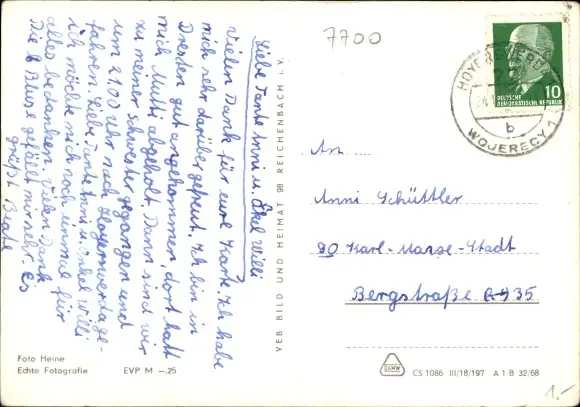 7700
Liebe Tante Anni u. Okel Willi
Vielen Dank für eure Karte. Ich habe
mich sehr darüber gefreut. Ich bin in
Dresden gut angekommen, dort hatt
mich Mutti abgeholt. Dann sind wir
zu meiner Schwester gegangen und
um 21.00 Uhr nach Hoyerswerda ge-
fahren. Liebe Tante Anni u. Onkel Willi
ich möchte mich noch einmal für
alles bedanken. Vielen Dank
Die Bluse gefällt mir sehr. Es
grüßt Beate
VEB BILD UND HEIMAT 98 REICHENBACH i. V.
HOYERSWERDA
WOJERECY 1
b
DEUTSCHE
DEMOKRATISCHE REPUBLIK
10
An
Anni Schüttler
90 Karl-Marx-Stadt
Bergstraße 35
Foto Heine
Echte Fotografie EVP M –.25
DAMW
CS 1086 III/18/197 A 1 B 32/68
1.-